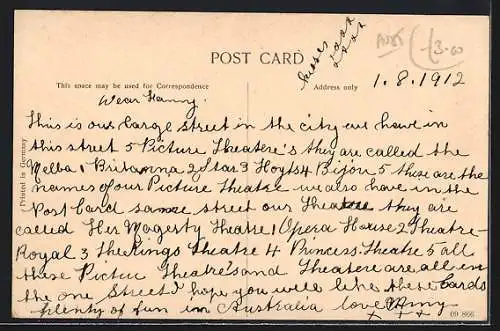 kisses xxxx
xxxx
A085
13.00
POST CARD
This space may be used for Correspondence
Address only
1.8.1912
Dear Fanny.
This is our large street in the city we have in
this street 5 Picture Theatere's they are called the
Melba 1 Britanna 2 Star 3 Hoyts 4 Bijou 5 these are the
names of our Picture Theatre we also have in the
Post Card same street our Theatre they are
called Her Magesty Theatre 1 Opera House 2 Theatre-
Royal 3 The Kings Theatre 4 Princess. Theatre 5 all
these Pictuer Theatre's and Theatere are all in
the one Street I hope you will like these cards
plenty of fun in Australia love Amy
x x x x
Printed in Germany
09 866